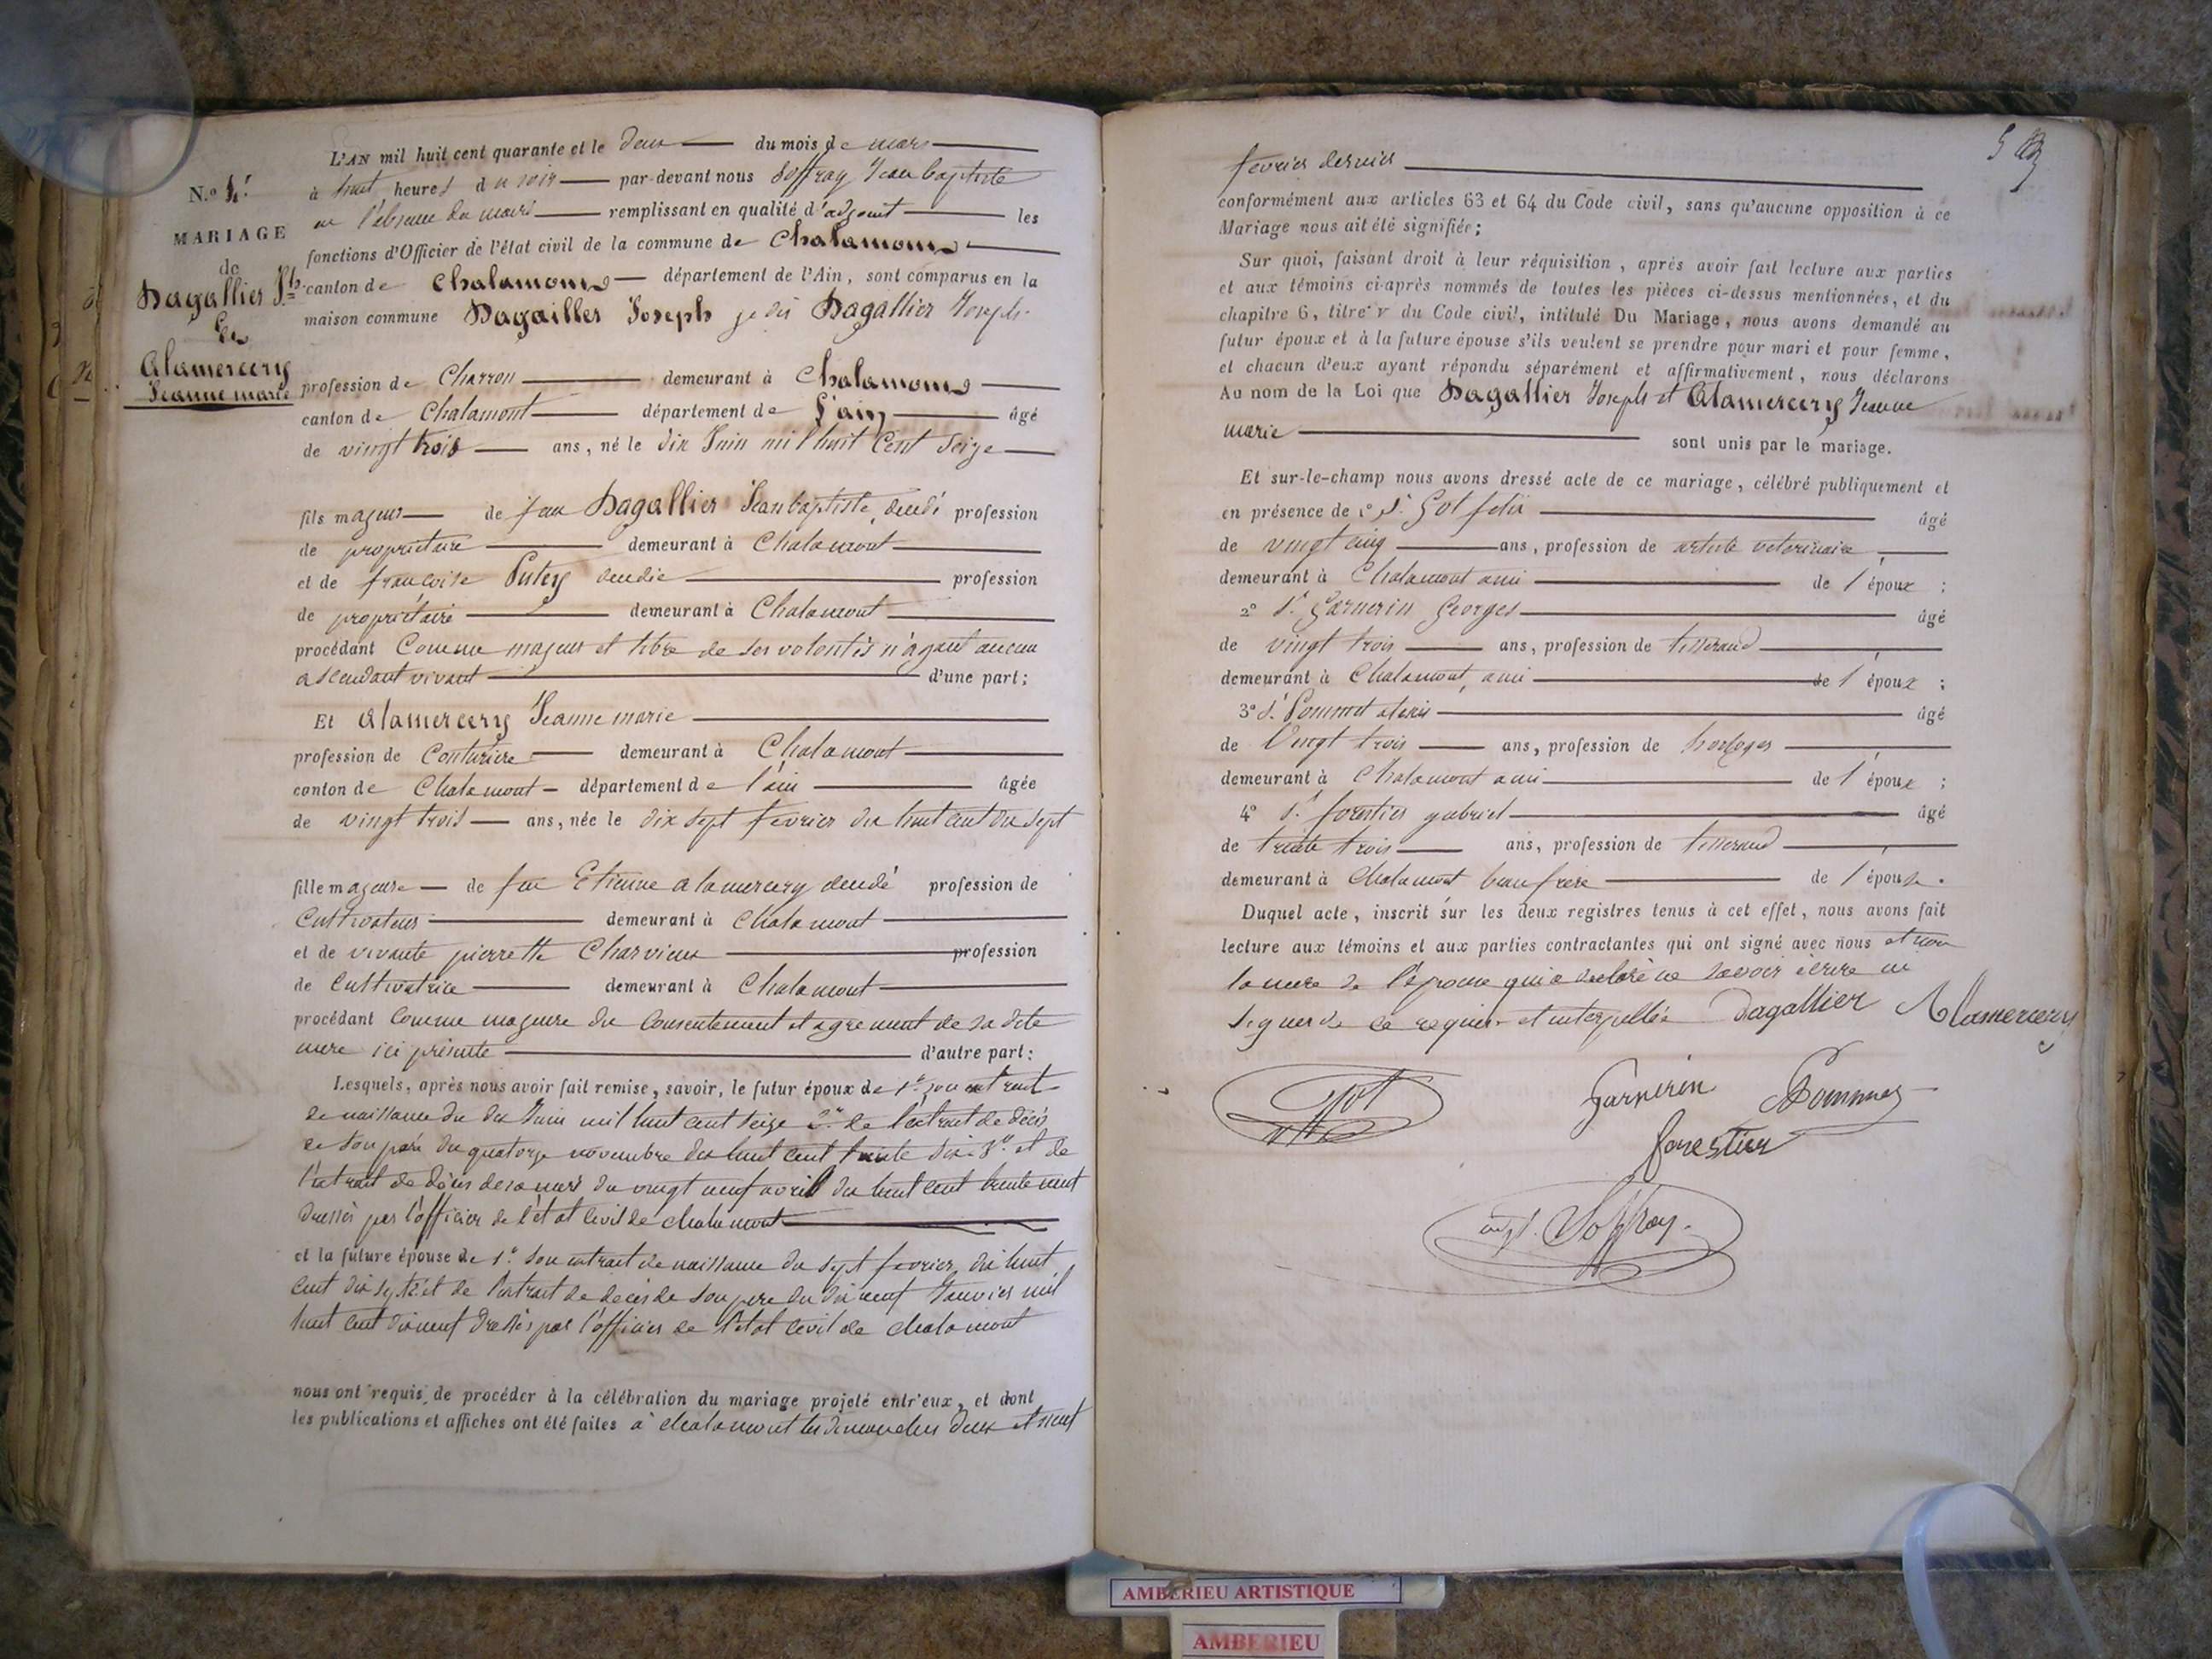 L'AN mil huit cent quarante et le deux du mois de mars
N.º
à huit heures du soir par-devant nous Soffray Jean baptiste
en l'absence du maire remplissant en qualité d'adjoint les
MARIAGE
fonctions d'Officier de l'état civil de la commune de Chalamont
de
canton de Chalamont département de l'Ain, sont comparus en la
Dagallier Jph
maison commune Dagailler Joseph je dis Dagallier Joseph
Et
Alamercery
Jeanne marie
profession de Charron demeurant à Chalamont
canton de Chalamont département de l'ain âgé
de vingt trois ans, né le dix Juin mil huit Cent Seize
fils majeur de feu Dagallier Jean baptiste, décédé profession
de propriétaire demeurant à Chalamont
et de françoise Putey décédée profession
de propriétaire demeurant à Chalamont
procédant Comme majeur et libre de ses volontés n'ayant aucun
ascendant vivant d'une part;
Et Alamercery Jeanne marie
profession de Couturière demeurant à Chalamont
canton de Chalamont département de l'ain âgée
de vingt trois ans, née le dix sept fevrier dix huit cent dix sept
fille majeure de feu Etienne alamercery décédé profession de
Cultivateur demeurant à Chalamont
et de vivante pierrette Charvieux profession
de Cultivatrice demeurant à Chalamont
procédant Comme majeure du Consentement et agrement de sa dite
mere ici présente d'autre part:
Lesquels, après nous avoir fait remise, savoir, le futur époux de 1º son extrait
de naissance du dix Juin mil huit cent seize 2º de l'extrait de décès
de son père du quatorze novembre dix huit cent trente six 3º et de
l'extrait de décès de sa mère du vingt neuf avril dix huit cent trente neuf
dressés par l'officier de l'état civil de chalamont
et la future épouse de 1º Son extrait de naissance du sept fevrier dix huit
cent dix sept 2º et de l'extrait de décès de son pere du dix neuf Janvier mil
huit cent dix neuf dressés par l'officier de l'état civil de chalamont
nous ont requis de procéder à la célébration du mariage projeté entr'eux, et dont
les publications et affiches ont été faites à chalamont les dimanches deux et neuf
fevrier dernier
conformément aux articles 63 et 64 du Code civil, sans qu'aucune opposition à ce
Mariage nous ait été signifiée;
Sur quoi, faisant droit à leur réquisition, après avoir fait lecture aux parties
et aux témoins ci-après nommés de toutes les pièces ci-dessus mentionnées, et du
chapitre 6, titre v du Code civil, intitulé Du Mariage, nous avons demandé au
futur époux et à la future épouse s'ils veulent se prendre pour mari et pour femme,
et chacun d'eux ayant répondu séparément et affirmativement, nous déclarons
Au nom de la Loi que Dagallier Joseph et Alamercery Jeanne
marie sont unis par le mariage.
Et sur-le-champ nous avons dressé acte de ce mariage, célébré publiquement et
en présence de 1º Sr. Got felix âgé
de vingt cinq ans, profession de artiste veterinaire
demeurant à Chalamont ami de l'époux;
2º Sr. Garnerin Georges âgé
de vingt trois ans, profession de tisserand
demeurant à Chalamont, ami de l'époux;
3º Sr. Pommet alexis âgé
de Vingt trois ans, profession de horloger
demeurant à Chalamont ami de l'époux;
4º Sr. forestier gabriel âgé
de trente trois ans, profession de tisserand
demeurant à Chalamont beau frere de l'épouse.
Duquel acte, inscrit sur les deux registres tenus à cet effet, nous avons fait
lecture aux témoins et aux parties contractantes qui ont signé avec nous et non
la mere de l'épouse qui a declaré ne savoir écrire ni
signer de ce requise et interpellée Dagallier Alamercery
Got Garnerin Pommet
forestier
adjt. Soffray
AMBERIEU ARTISTIQUE
AMBERIEU